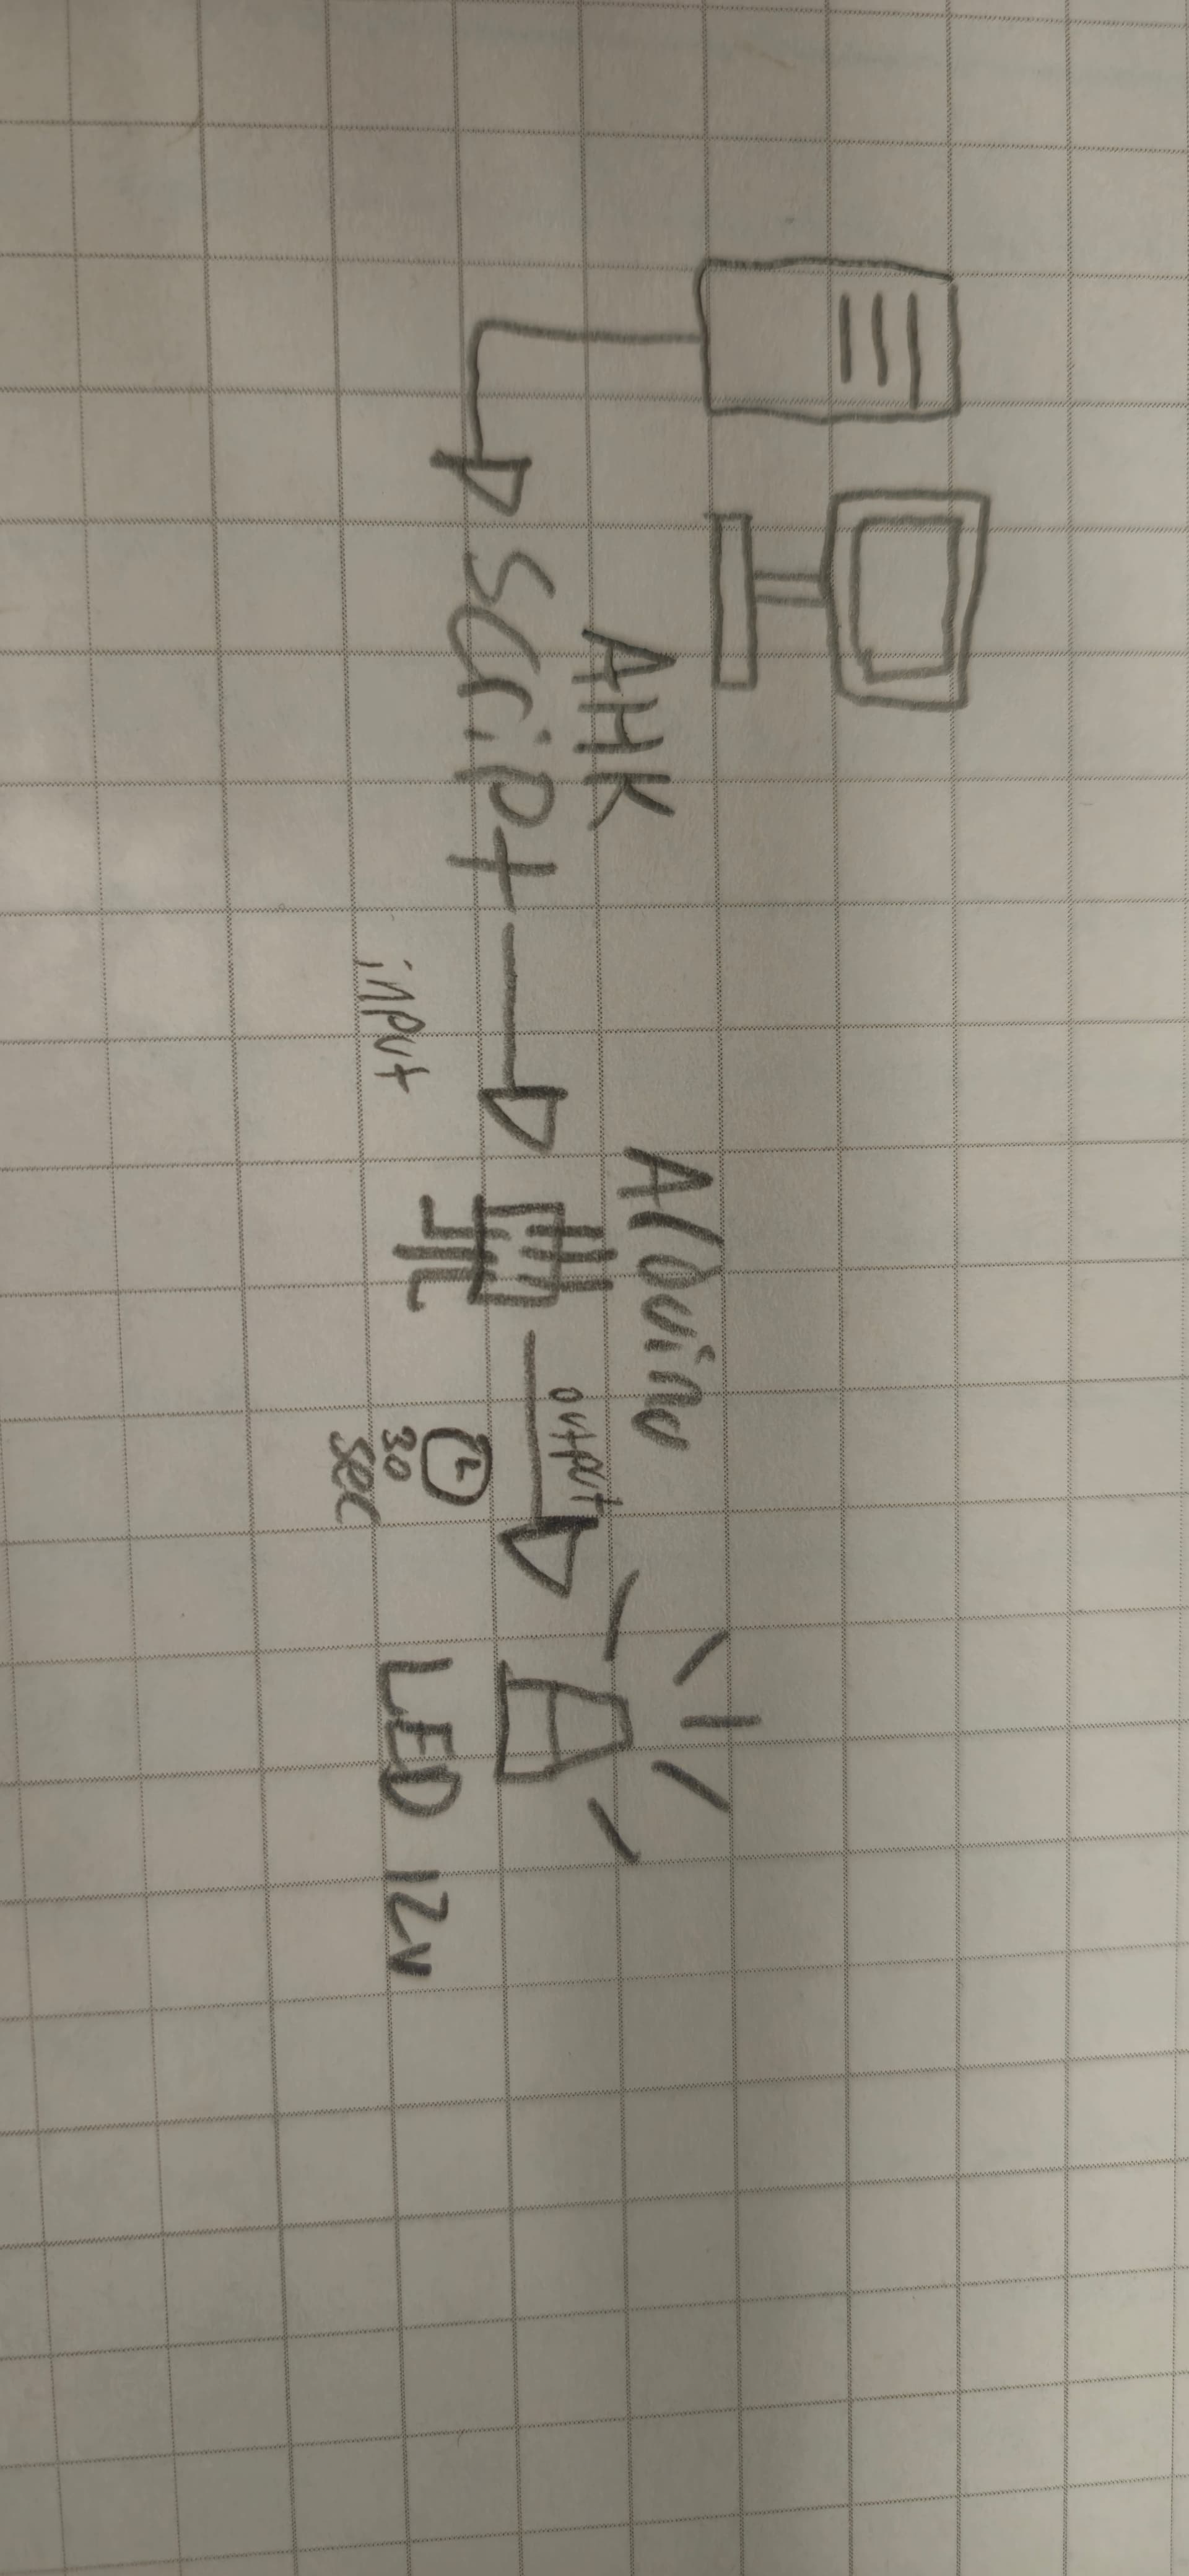 AHK
Script
input
Arduino
output
30
sec
LED 12V